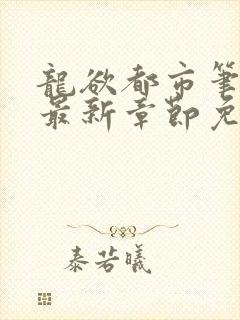 龍欲都市筆
最新章節免
泰若曦